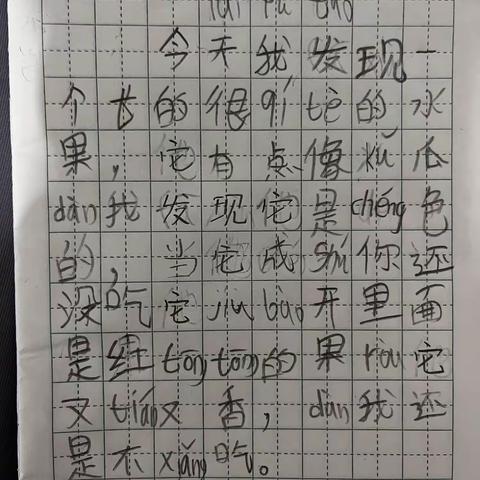 今天我发现一
个长的很qí tè的水
果，它有点像kǔ瓜
dàn我发现它是chéng色
的，当它成shú你还
没吃它jiù bào开里面
是红tōng tōng的果ròu它
又tián又香，dàn我还
是不xiǎng吃。